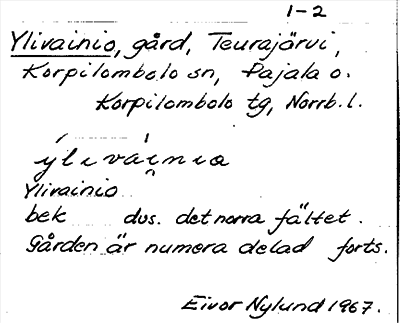 1-2
Ylivainio, gård, Teurajärvi,
Korpilombolo sn, Pajala o.
Korpilombolo tg, Norrb. l.
ýlivái̯nia
Ylivainio
bek dus. det norra fältet.
Gården är numera delad forts.
Eivor Nylund 1967.